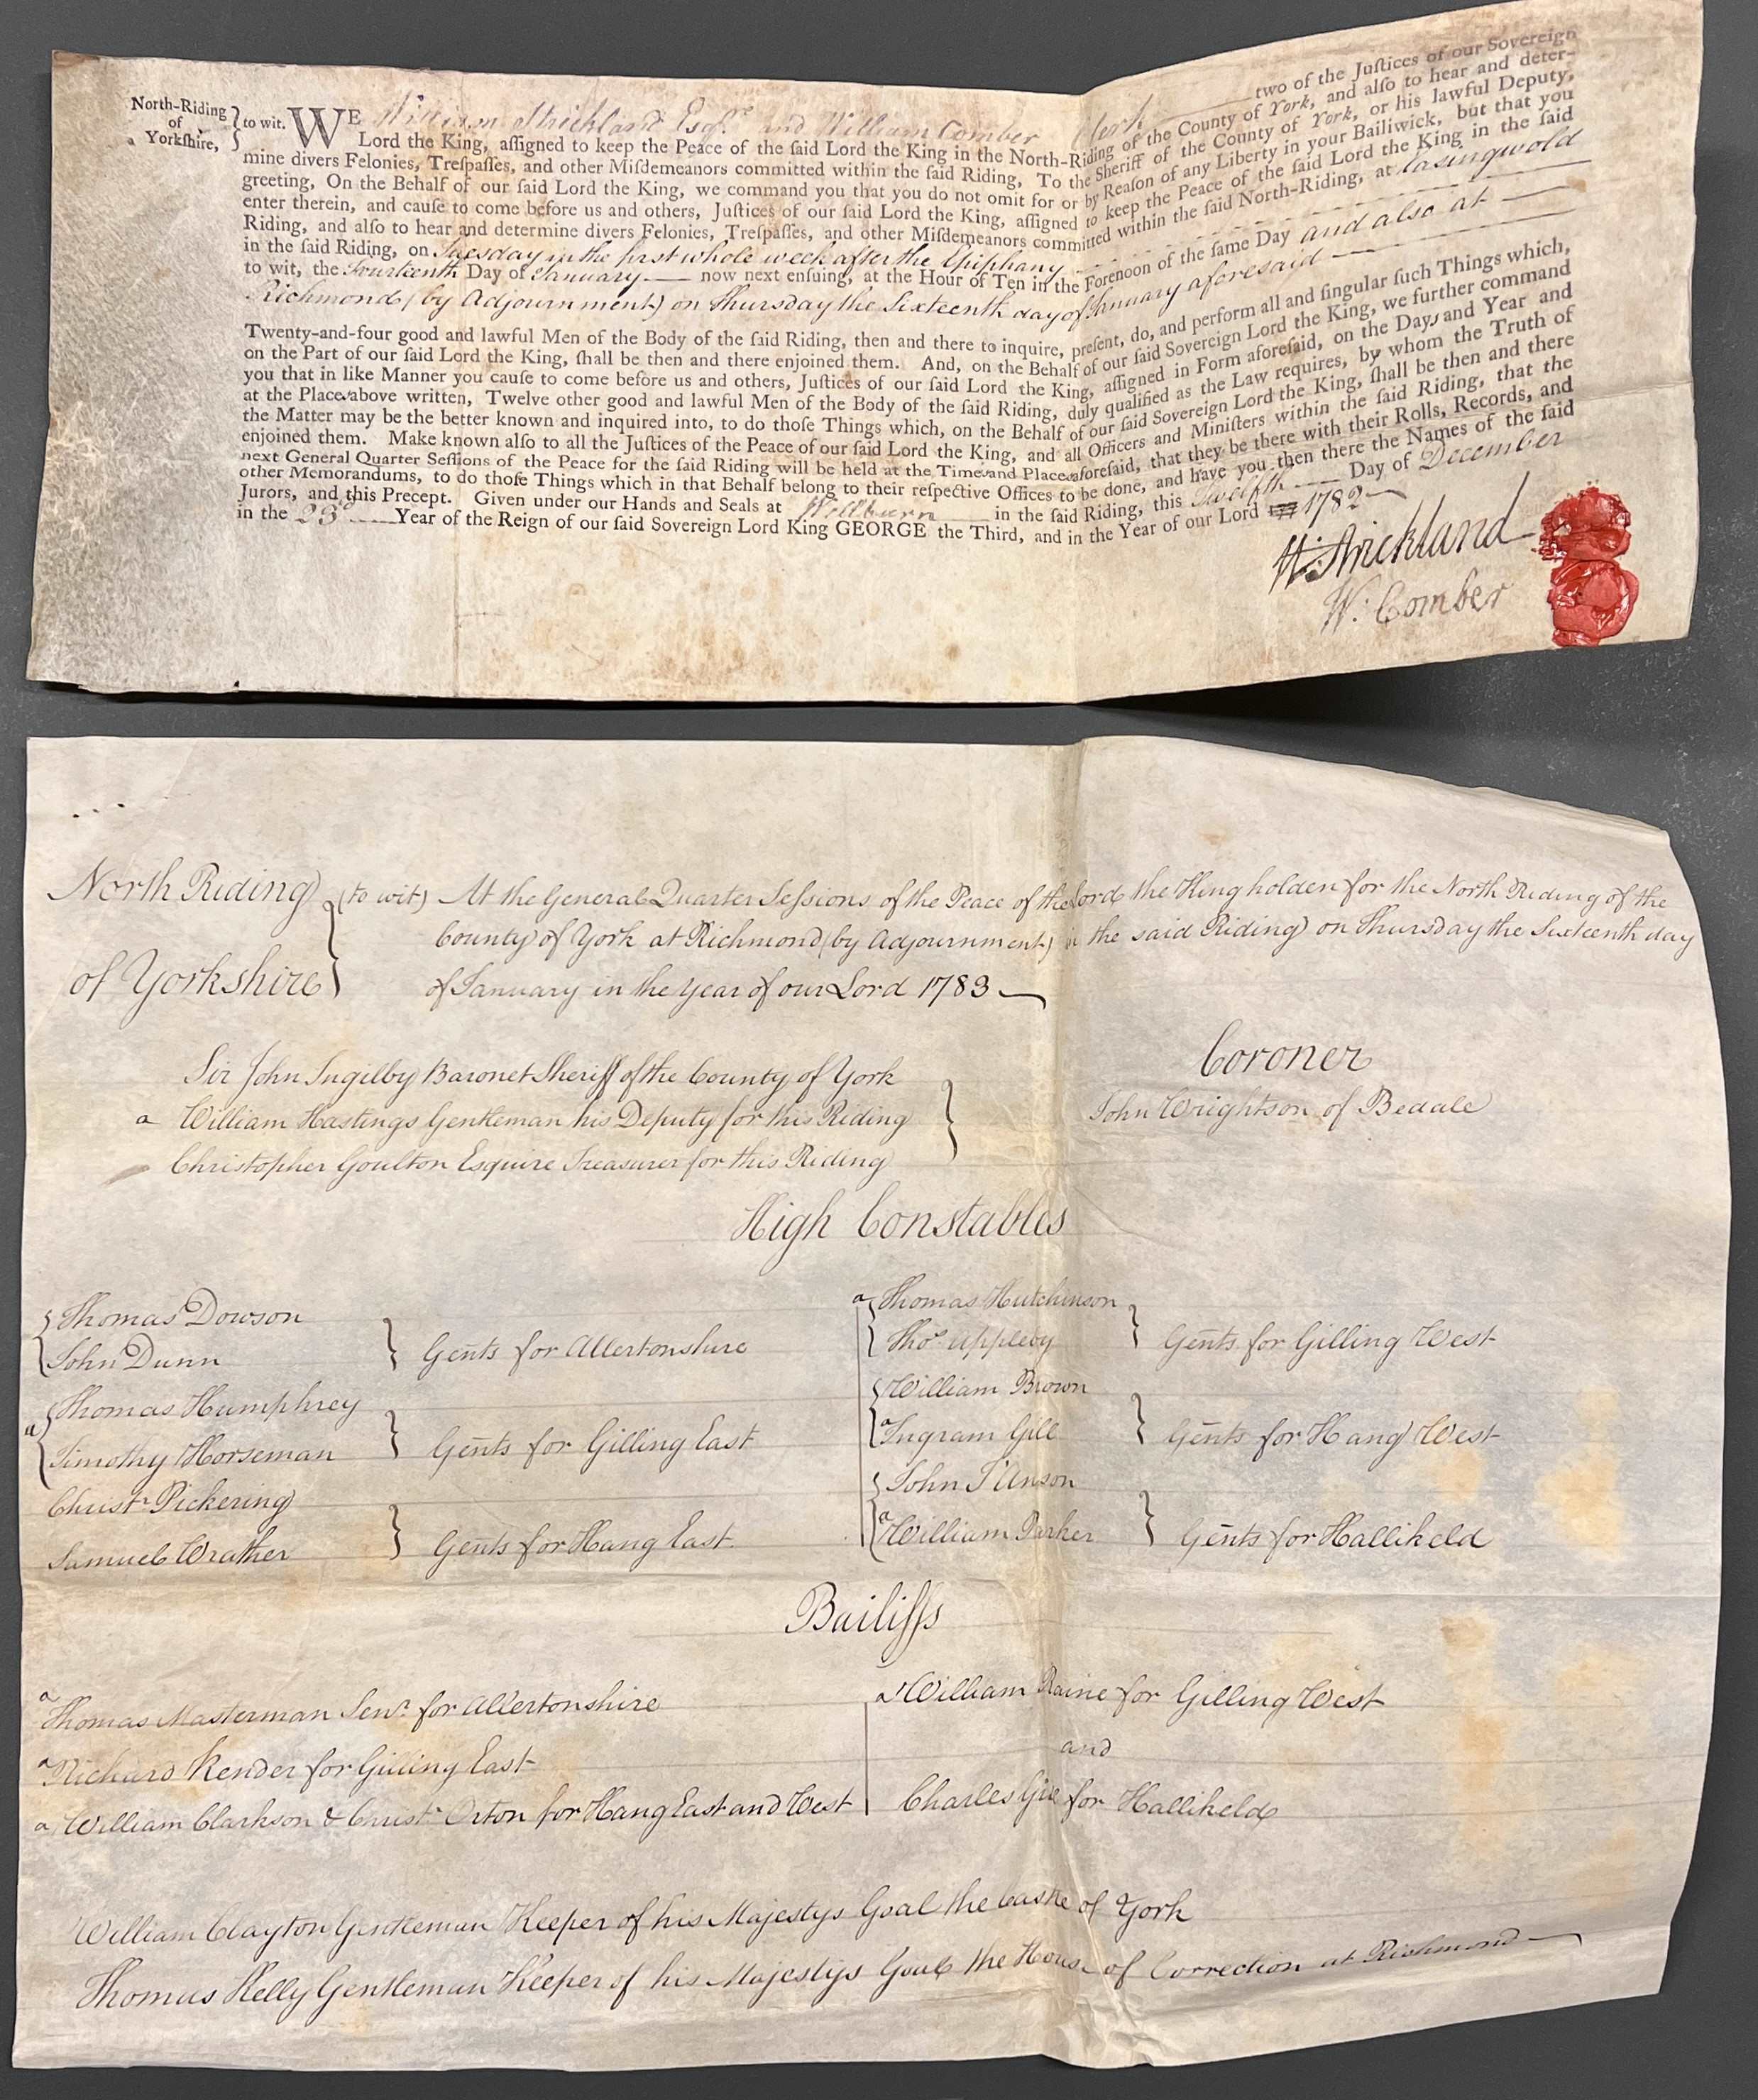 North-Riding
of
Yorkſhire,
to wit.
WE William Strickland Esqr. and William Comber Clerk two of the Juſtices of our Sovereign
Lord the King, aſſigned to keep the Peace of the ſaid Lord the King in the North-Riding of the County of York, and alſo to hear and deter-
mine divers Felonies, Treſpaſſes, and other Miſdemeanors committed within the ſaid Riding, To the Sheriff of the County of York, or his lawful Deputy,
greeting, On the Behalf of our ſaid Lord the King, we command you that you do not omit for or by Reaſon of any Liberty in your Bailiwick, but that you
enter therein, and cauſe to come before us and others, Juſtices of our ſaid Lord the King, aſſigned to keep the Peace of the ſaid Lord the King in the ſaid
Riding, and alſo to hear and determine divers Felonies, Treſpaſſes, and other Miſdemeanors committed within the ſaid North-Riding, at Easingwold
in the ſaid Riding, on Tuesday in the first whole week after the Epiphany
to wit, the Fourteenth Day of January now next enſuing, at the Hour of Ten in the Forenoon of the ſame Day and also at
Richmond (by Adjournment) on Thursday the Sixteenth day of January aforesaid
Twenty-and-four good and lawful Men of the Body of the ſaid Riding, then and there to inquire, preſent, do, and perform all and ſingular ſuch Things which,
on the Part of our ſaid Lord the King, ſhall be then and there enjoined them. And, on the Behalf of our ſaid Sovereign Lord the King, we further command
you that in like Manner you cauſe to come before us and others, Juſtices of our ſaid Lord the King, aſſigned in Form aforeſaid, on the Days and Year and
at the Places above written, Twelve other good and lawful Men of the Body of the ſaid Riding, duly qualified as the Law requires, by whom the Truth of
the Matter may be the better known and inquired into, to do thoſe Things which, on the Behalf of our ſaid Sovereign Lord the King, ſhall be then and there
enjoined them. Make known alſo to all the Juſtices of the Peace of our ſaid Lord the King, and all Officers and Miniſters within the ſaid Riding, that the
next General Quarter Seſſions of the Peace for the ſaid Riding will be held at the Times and Places aforeſaid, that they be there with their Rolls, Records, and
other Memorandums, to do thoſe Things which in that Behalf belong to their reſpective Offices to be done, and have you then there the Names of the ſaid
Jurors, and this Precept. Given under our Hands and Seals at Wellburn in the ſaid Riding, this Twelfth Day of December
in the 23d Year of the Reign of our ſaid Sovereign Lord King GEORGE the Third, and in the Year of our Lord 1782
W: Strickland
W: Comber
North Riding (to wit) At the General Quarter Sessions of the Peace of the Lord the King holden for the North Riding of the
County of York at Richmond (by Adjournment) in the said Riding on Thursday the Sixteenth day
of Yorkshire of January in the Year of our Lord 1783
Sir John Ingilby Baronet Sheriff of the County of York
a William Hastings Gentleman his Deputy for this Riding
Christopher Goulton Esquire Treasurer for this Riding
Coroner
John Wrightson of Bedale
High Constables
Thomas Dowson
John Dunn
Gents for Allertonshire
a Thomas Humphrey
Timothy Horseman
Gents for Gilling East
Christr. Pickering
Samuel Wrather
Gents for Hang East
a Thomas Hutchinson
Thos. Appleby
Gents for Gilling West
William Brown
a Ingram Gill
Gents for Hang West
John I'Anson
a William Parker
Gents for Hallikeld
Bailiffs
a Thomas Masterman Senr. for Allertonshire
a Richard Render for Gilling East
a William Clarkson & Christr. Orton for Hang East and West
a William Raine for Gilling West
and
Charles Gill for Hallikeld
William Clayton Gentleman Keeper of his Majestys Goal the Castle of York
Thomas Kelly Gentleman Keeper of his Majestys Goal the House of Correction at Richmond